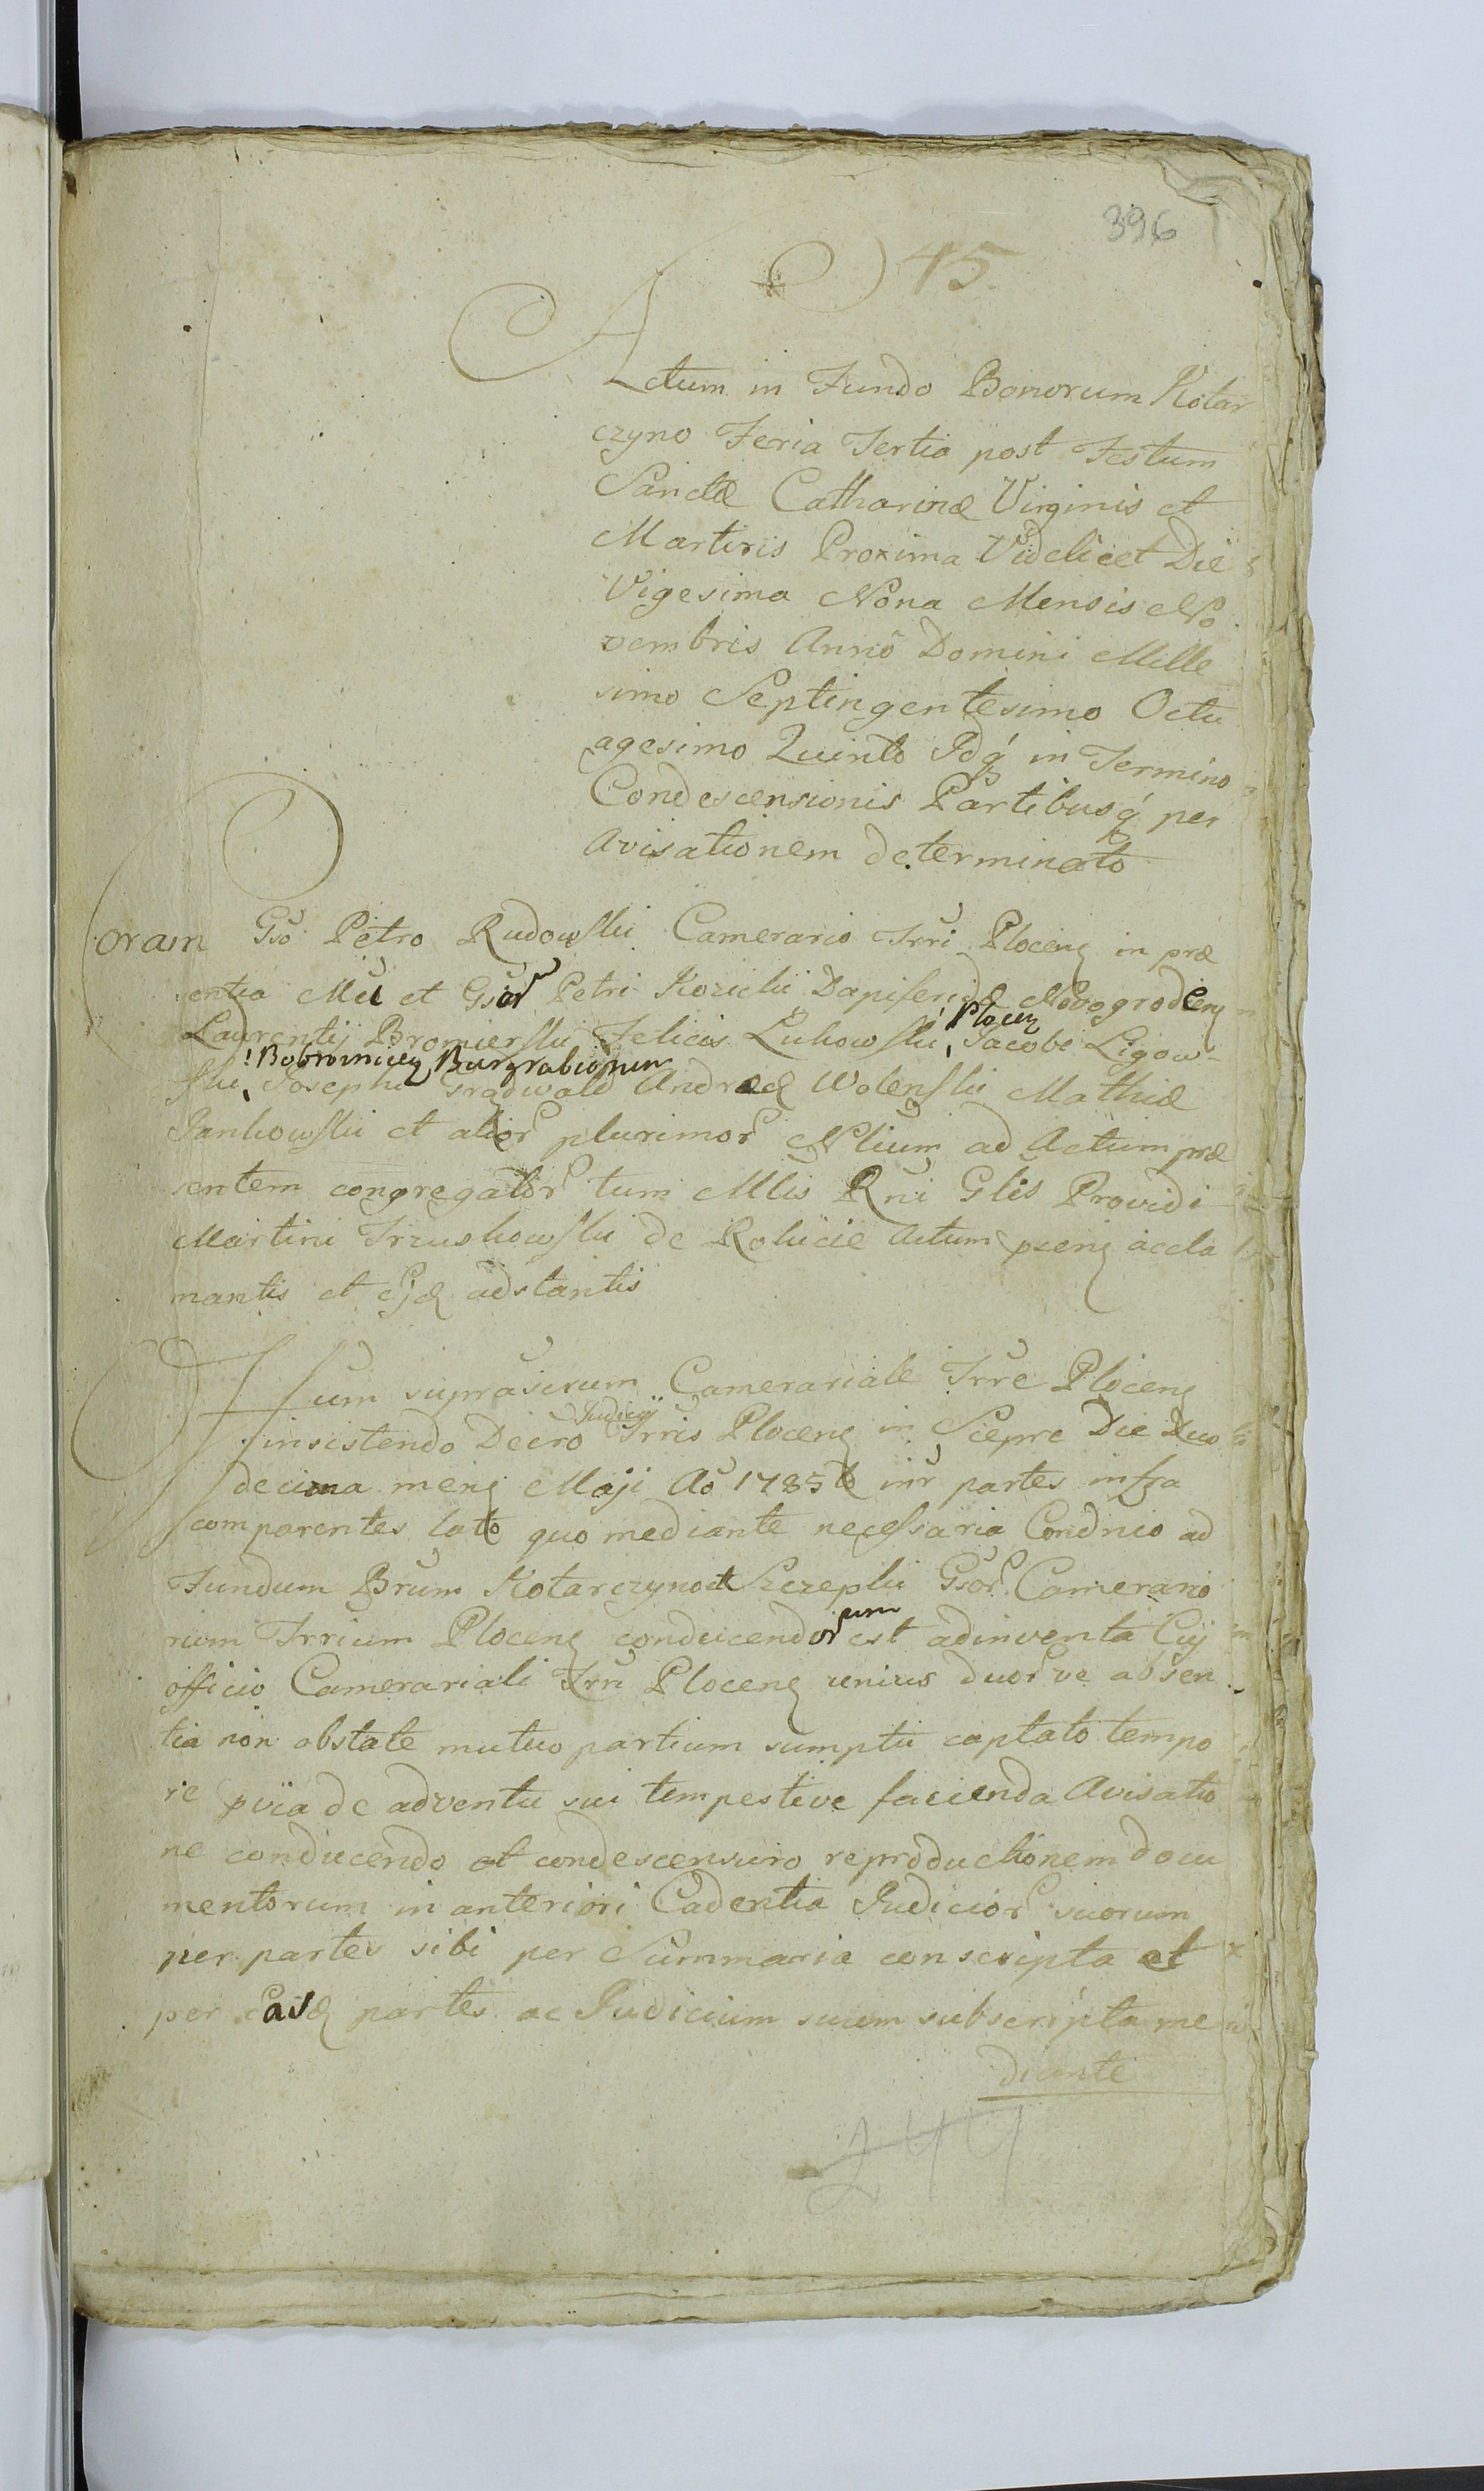 396
45.
Actum in Fundo Bonorum Kotar
czyno Feria Tertia post Festum
Sanctæ Catharinæ Virginis et
Martiris Proxima Videlicet Die
Vigesima Nona Mensis No
vembris Anno Domini Mille
simo Septingentesimo Octu
agesimo Quinto Idq́ in Termino
Condescensionis Partibusq́ per
Avisationem determinato
Coram Gso Petro Rudowski Camerario Trri Plocenȩ in præ
sentia Mci et Gsor Petri Kozicki Dapiferidæ Novogrodenȩ
Plocenȩ
Laurentij Bromierski Felicis Lukowski, Jacobi Ligow-
Bobrownicenȩ Burgrabiorum
ski, Josephi Gradwald Andreæ Wolenski Mathiæ
Jankowski et alior plurimor Nlium ad Actum præ
sentem congregator tum Mlis Rni Glis Providi
Martini Trzuskowski de Rokicie Actum pzenȩ accla
mantis et Ejdȩ adstantis
Jsum suprascrum Camerariale Trre Plocenȩ
Judicij
insistendo Decro Trris Plocenȩ in Siepre Die Duo
decima menȩ Maji Ao 1785to inr partes infra
comparentes lato quo mediante necessaria Condnio ad
Fundum Brum Kotarczyno et Szczepki Gsor Camerario
um
rum Trrium Plocenȩ conducendor est adinventa Cuj
officio Camerariali Trri Plocenȩ unius duorve absen
tia non obstate mutuo partium sumptu captato tempo
re pvia de adventu sui tempestive facienda Avisatio
ne conducendo et condescensuro reproductionem docu
mentorum in anteriori Cadentia Judicior suorum
per partes sibi per Summaria conscripta et
per Easdȩ partes ac Judicium suum subscripta me
diante
244